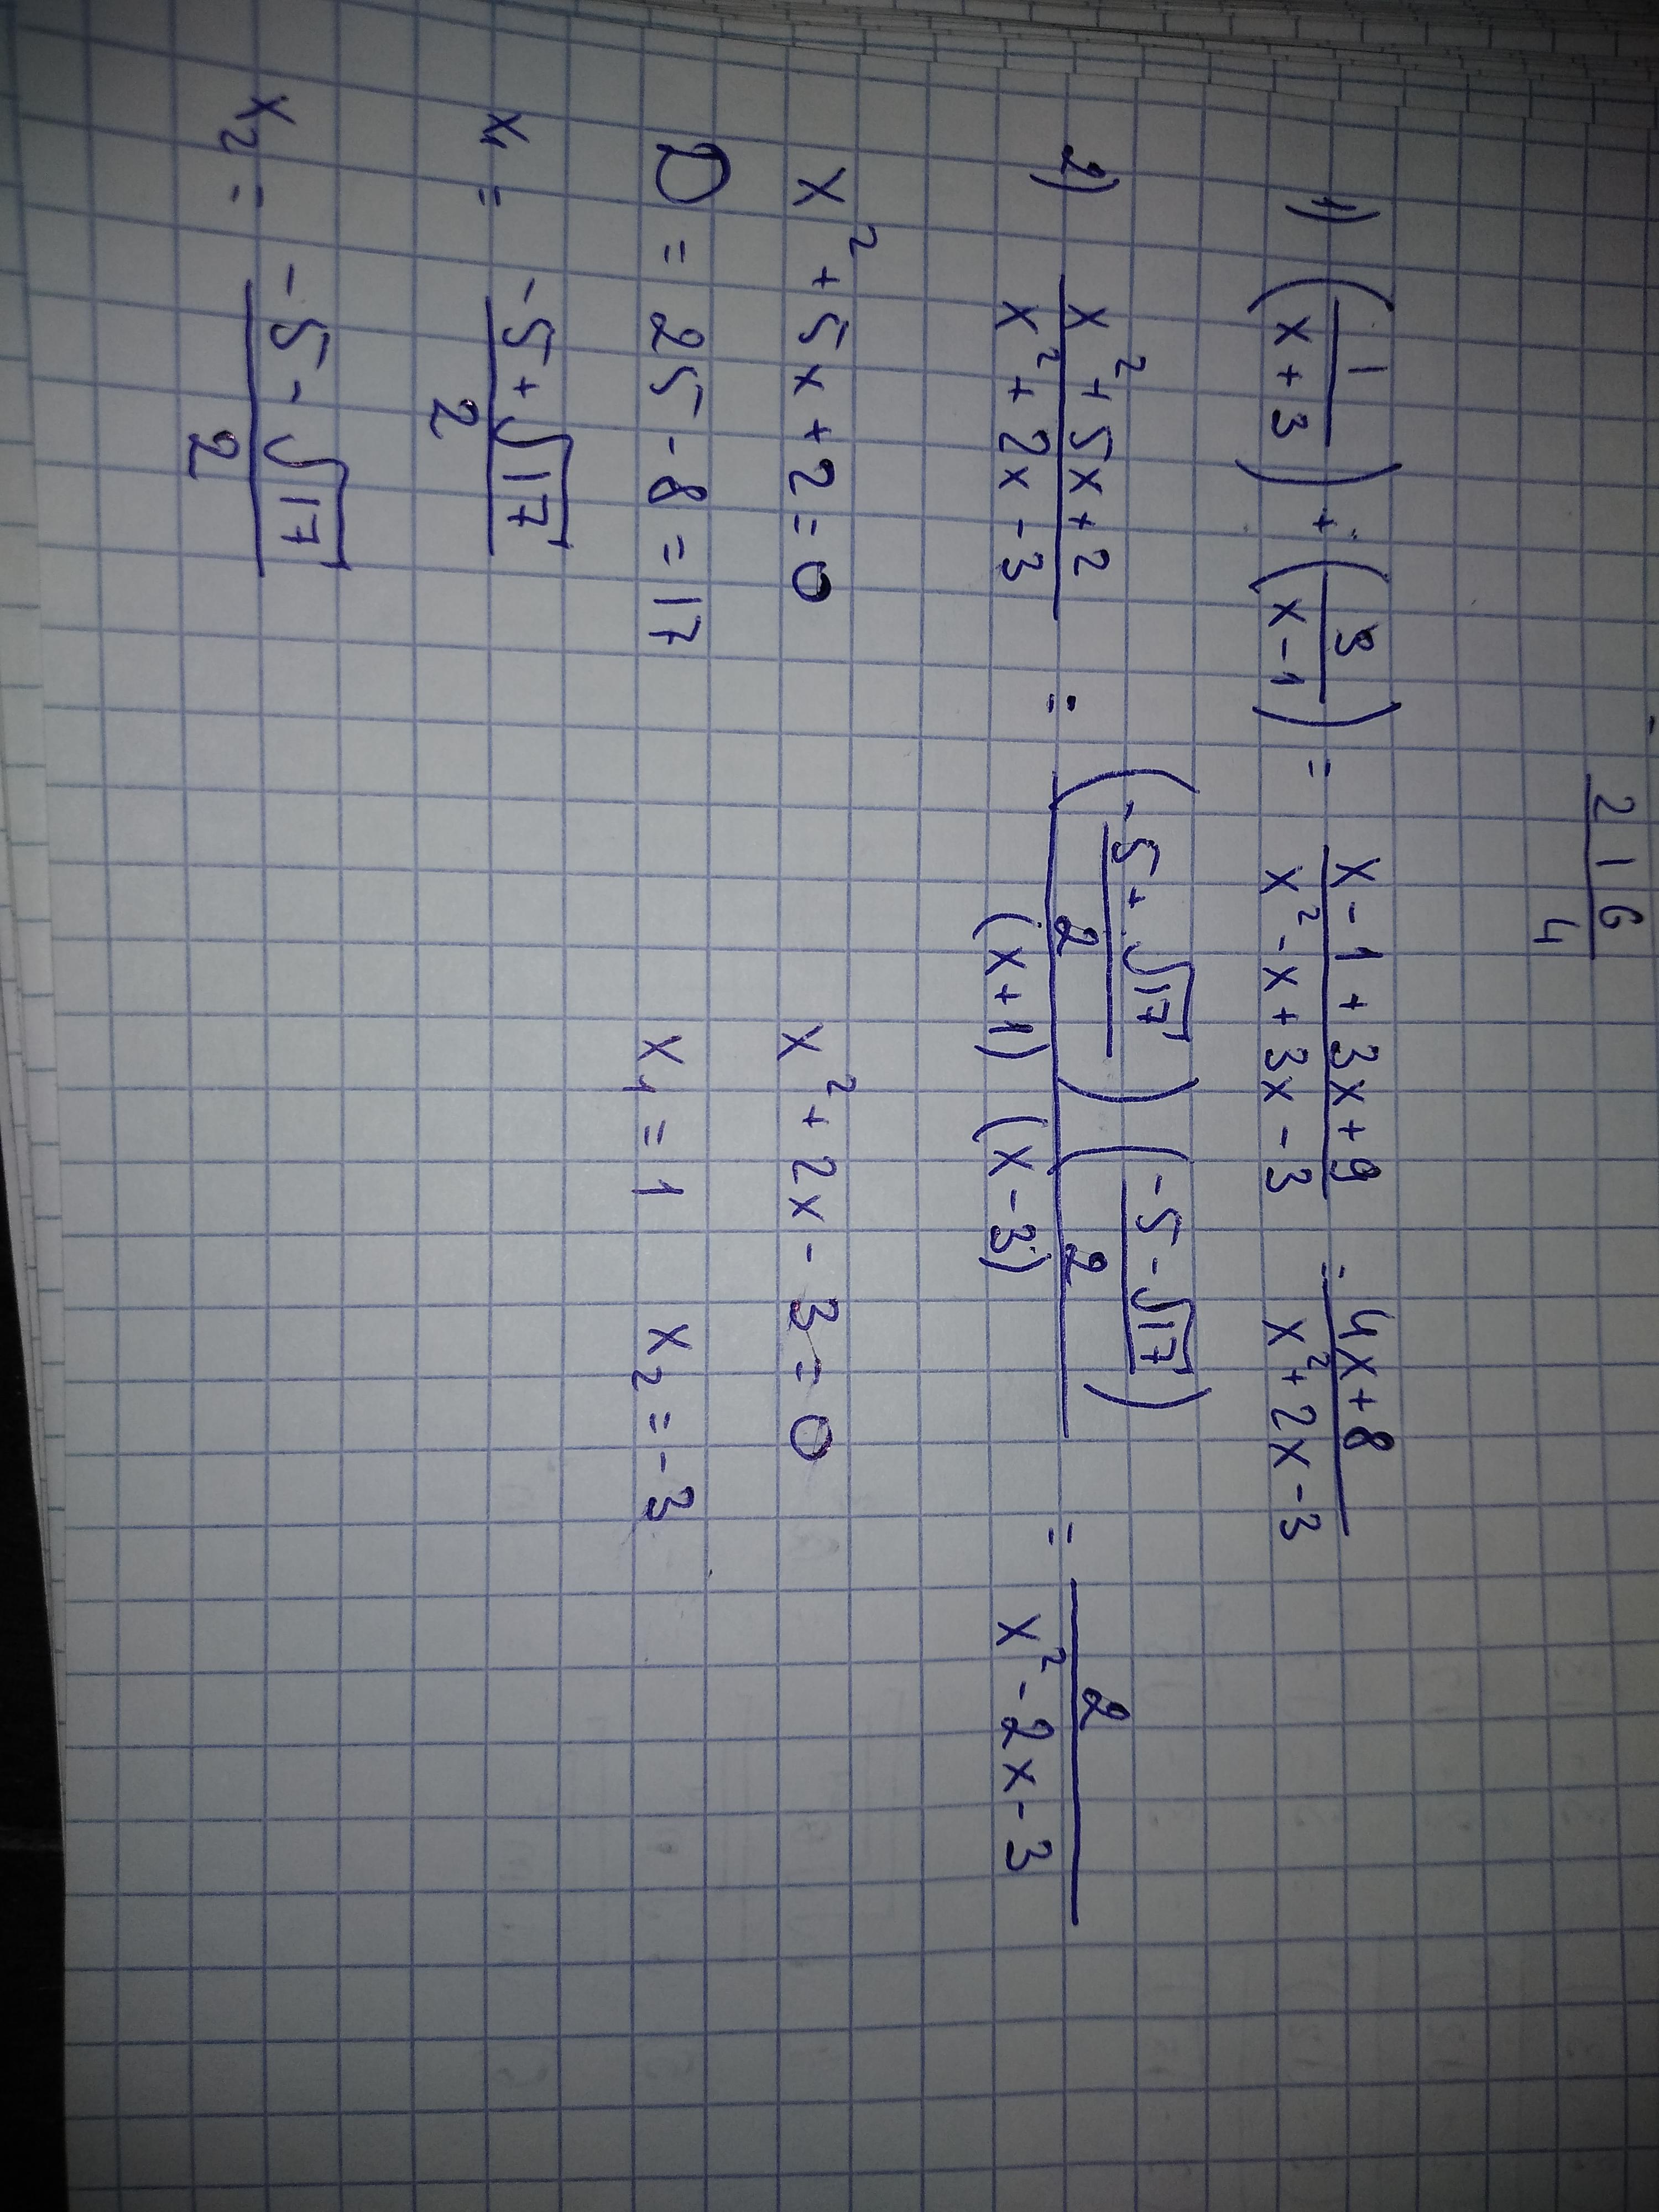 216
4
1) (1/(x+3)) + (3/(x-1)) = (x-1+3x+9)/(x²-x+3x-3) = (4x+8)/(x²+2x-3)
2) (x²+5x+2)/(x²+2x-3) = ((-5+√17)/2)((-5-√17)/2)/((x+1)(x-3)) = 2/(x²-2x-3)
x²+5x+2=0 x²+2x-3=0
D=25-8=17 x₁=1 x₂=-3
x₁= (-5+√17)/2
x₂= (-5-√17)/2